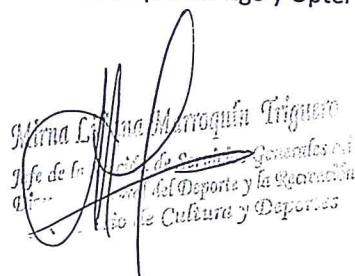 go y Opter
Mirna Marroquín Triguero
Jefe de la de Servicios Generales
del Deporte y la Recreación
de Cultura y Deportes